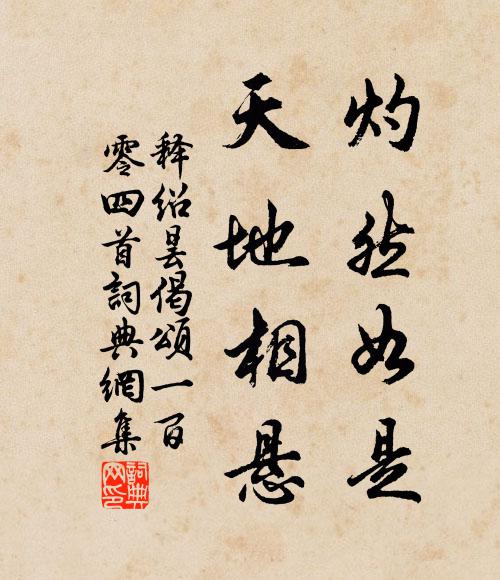 灼然如是
天地相悬
释绍昙偈颂一百
零四首词典网集
词典网印